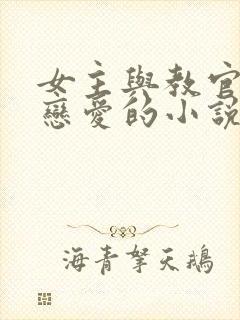 女主與教官
戀愛的小說
海青拏天鵝